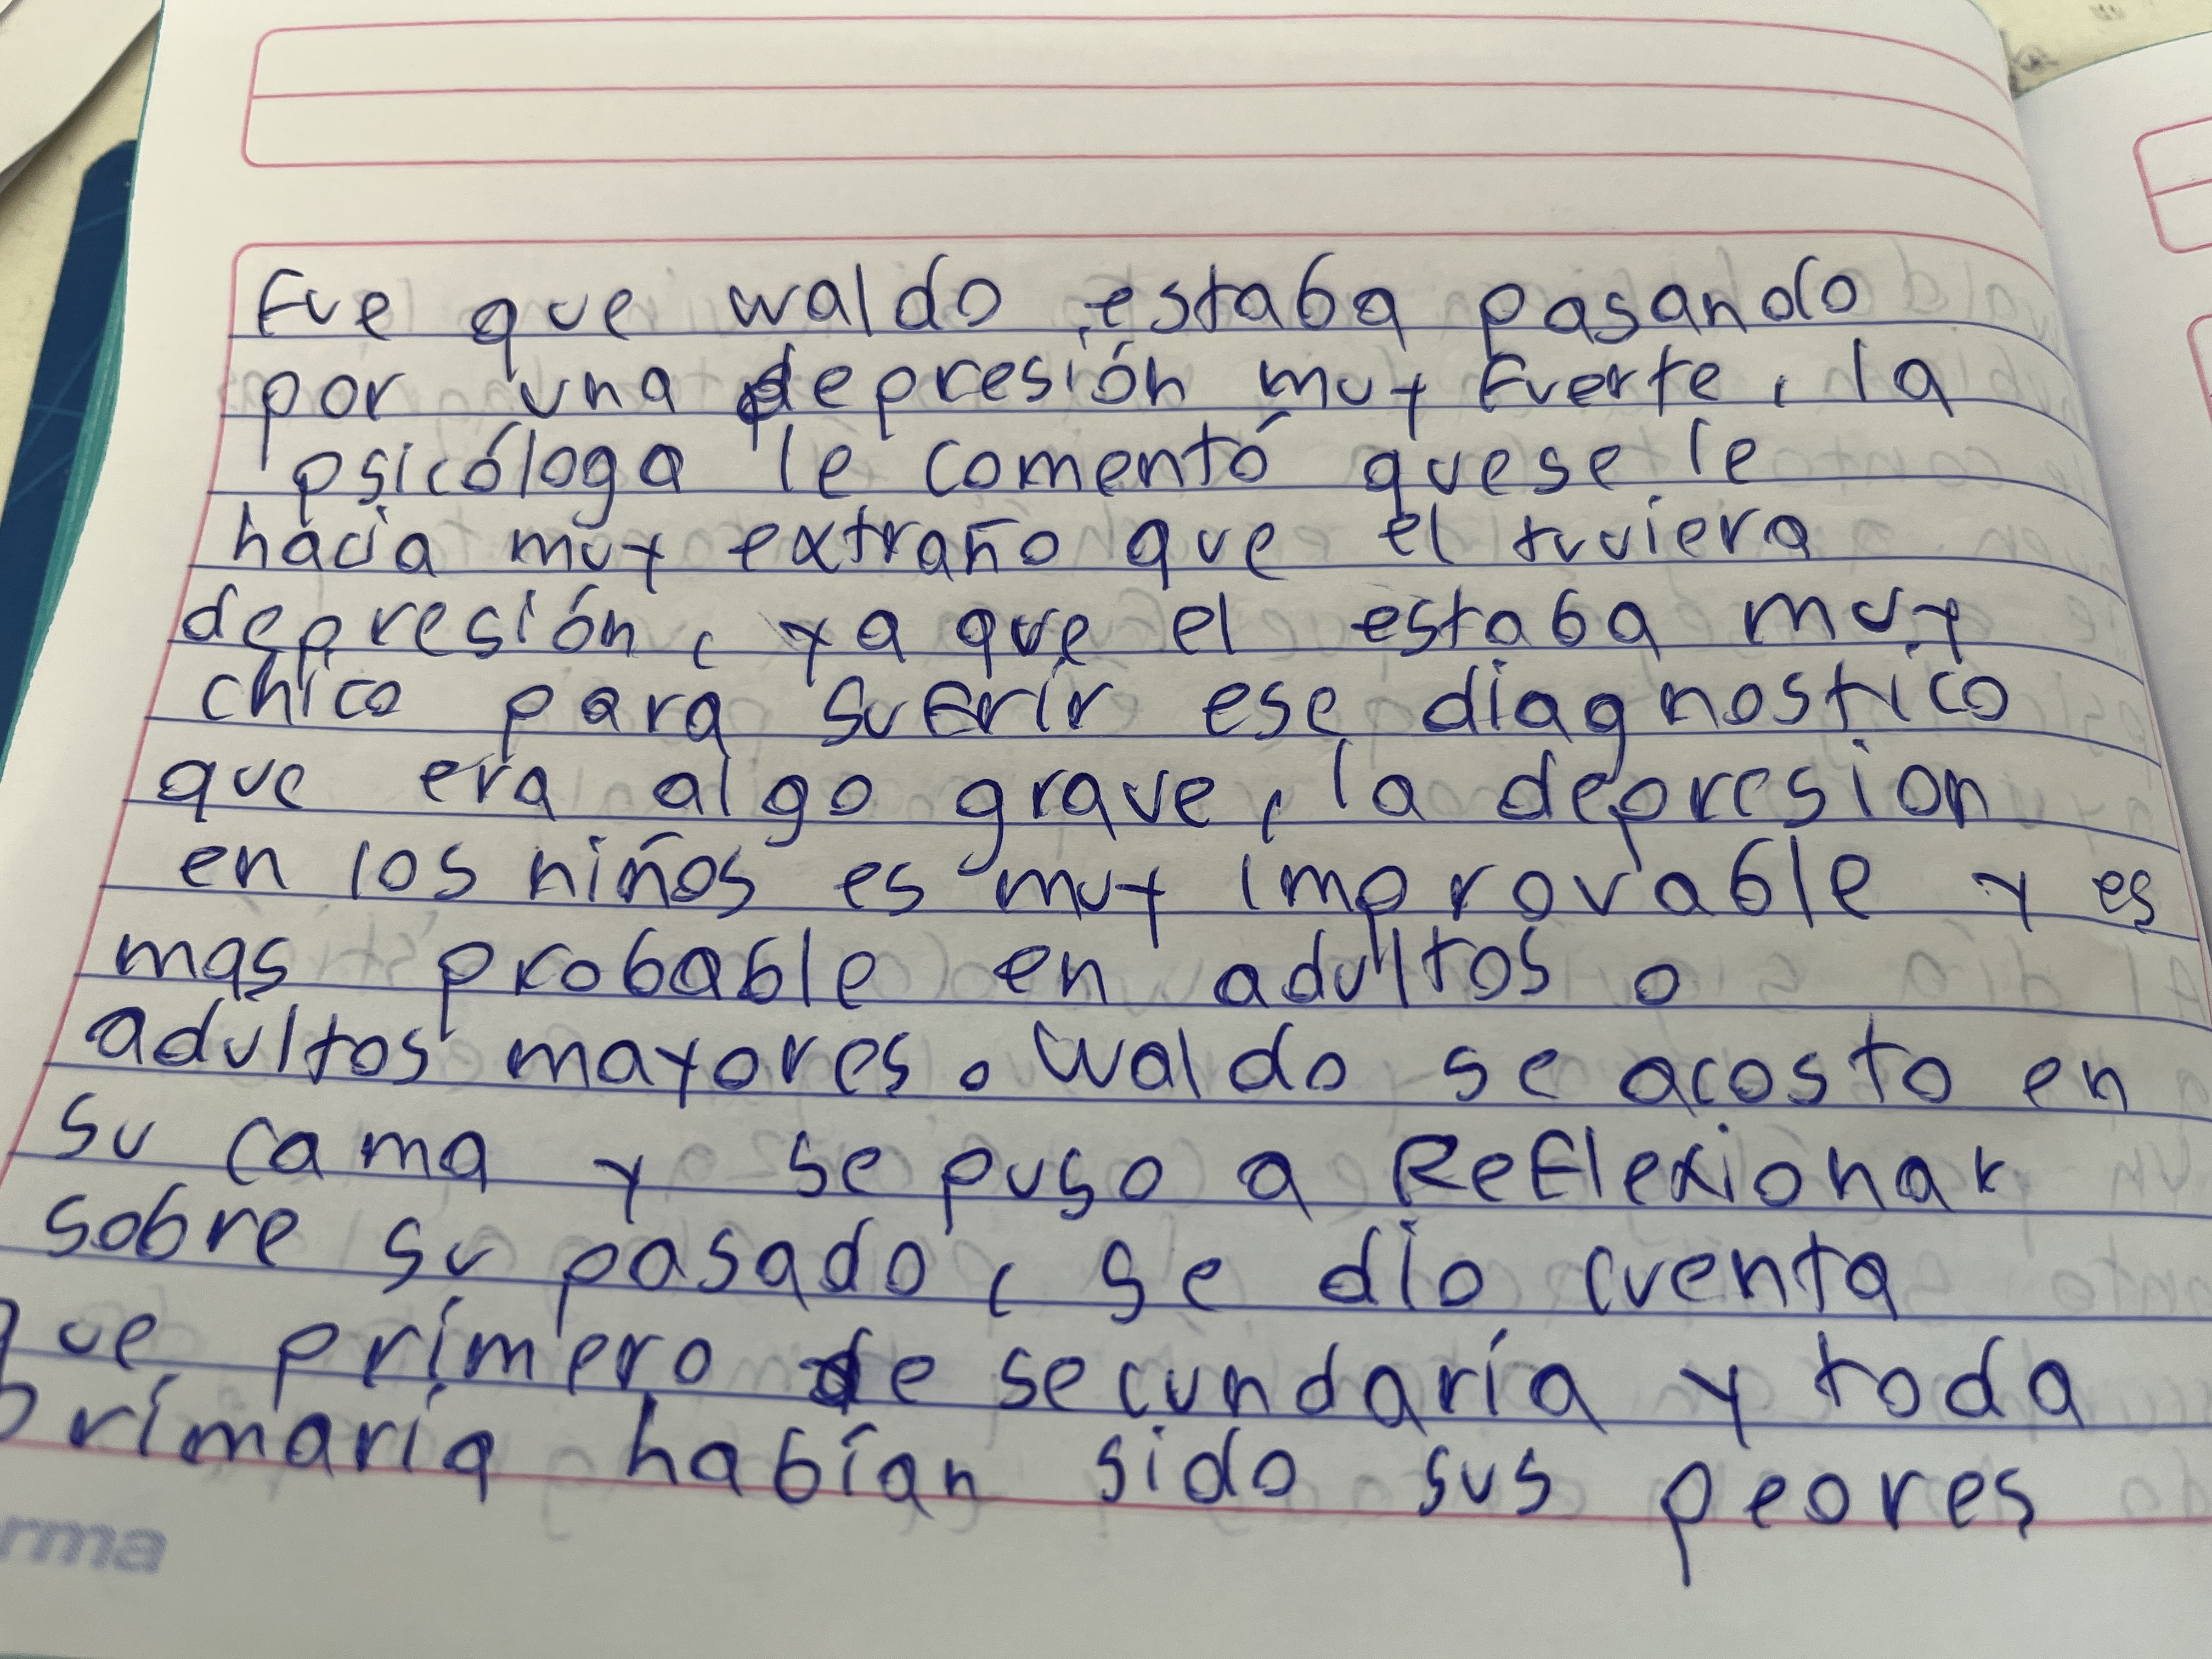 Fue que waldo estaba pasando
por una depresión muy fuerte, la
psicóloga le comentó quese le
hacia muy extraño que el tuviera
depresión, ya que el estaba muy
chico para sufrir ese diagnostico
que era algo grave, la depresion
en los niños es muy improvable y es
mas probable en adultos o
adultos mayores. Waldo se acosto en
su cama y se puso a Reflexionar
sobre su pasado, se dio cuenta
que primero de secundaria y toda
primaria habían sido sus peores
rma